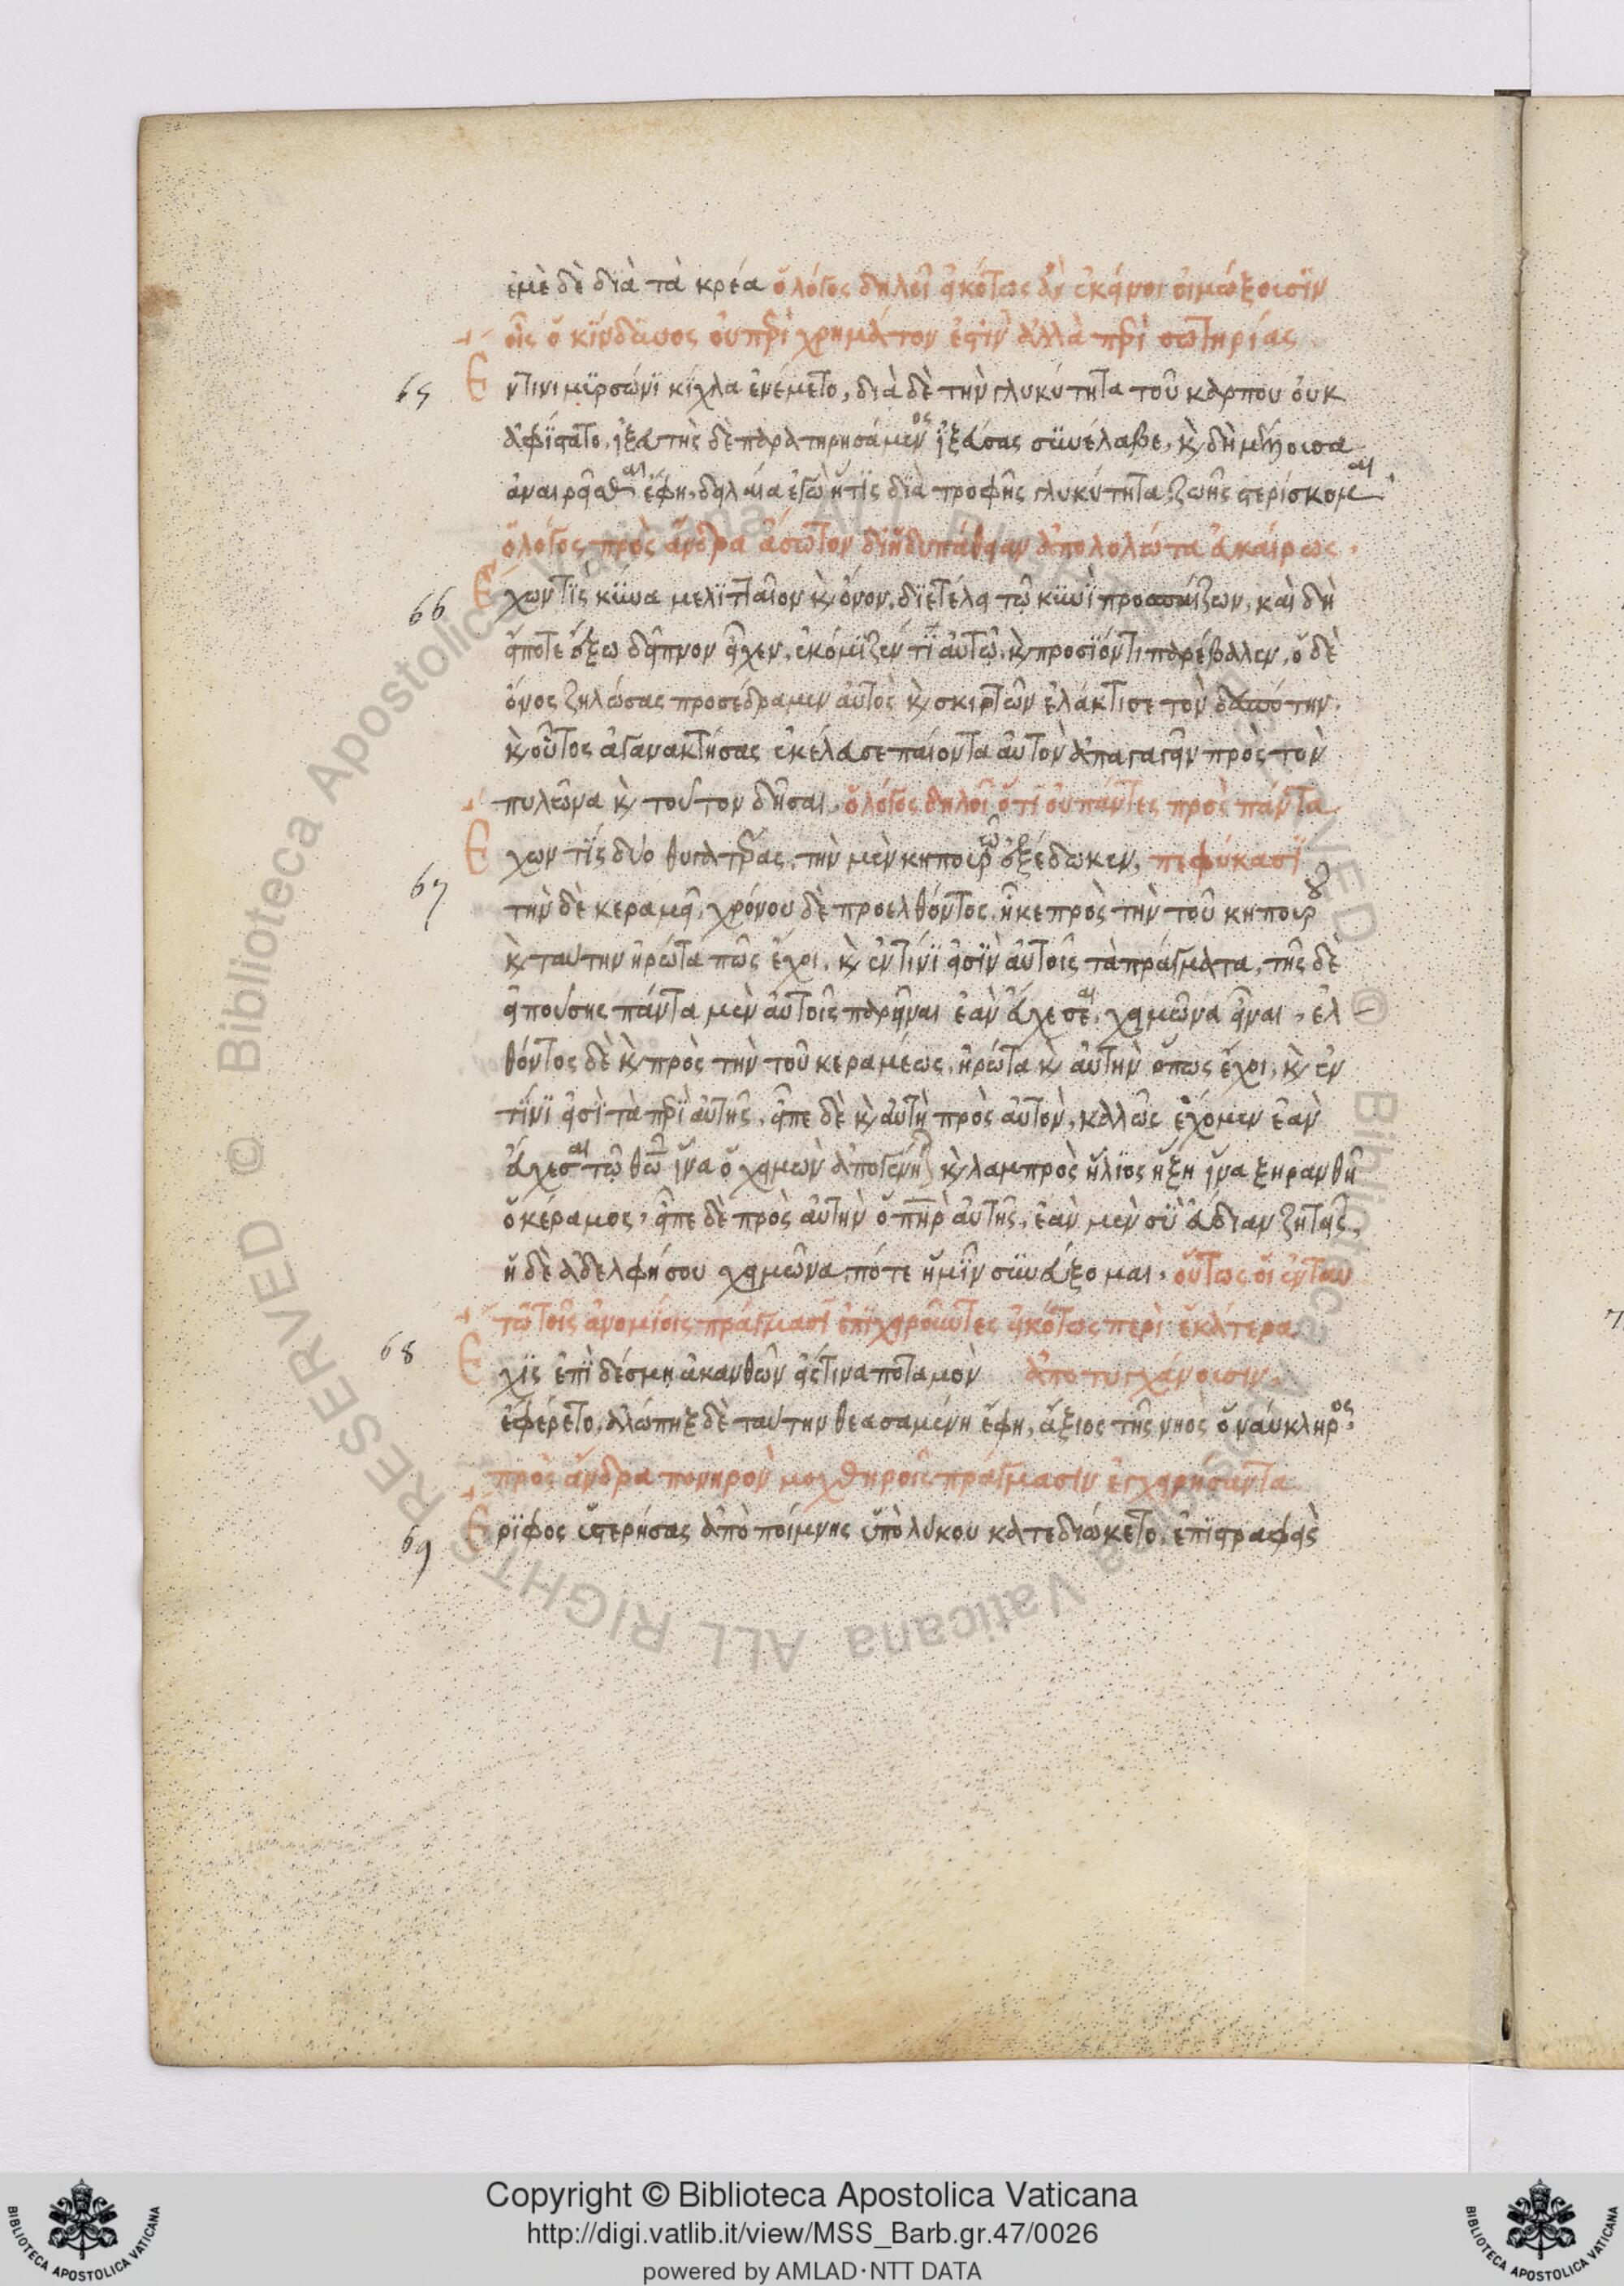 ἐμὲ δὲ διὰ τὰ κρέα ὁ λόγος δηλοῖ εἰκότως ἂν ἐκεῖνοι οἰμώξουσϊν
οἷς ὁ κίνδυνος οὐ περὶ χρημάτον ἐστϊν ἀλλὰ περὶ σωτηρίας
65 Ἐν τινι μϋρσώνϊ κίχλα ἐνέμετο, διὰ δὲ τὴν γλυκύτητα τοῦ καρπου οὐκ
ἀφϊστατο. ἰξευτὴς δὲ παρατηρησάμενος ἰξεύσας σϋνέλαβε, κ δὴ μέλλουσα
ἀναιρεῖσθαι ἔφη, δειλαία ἐγὼ ἥτϊς διὰ τροφῆς γλυκύτητα ζωῆς στερίσκομαι
ὁ λόγος πρὸς ἄνδρα ἄσωτον δι ἡδυπάθειαν ἀπολολώτα ἀκαίρως
66 Ἔχων τϊς κϋνα μελϊταῖον κ ὄνον. διετέλει τῶ κϋνϊ προσπαίζων, καὶ δὴ
εἴποτε ἔξω δεῖπνον εἶχεν. ἐκόμϊζέν τϊ αὐτῶ. κ προσϊόντι παρέβαλεν, ὁ δὲ
ὄνος ζηλώσας προσέδραμεν αὐτὸς κ σκιρτῶν ἐλάκτισε τὸν δεσπότην.
κ οὗτος ἀγανακτήσας ἐκέλευσε παίοντα αὐτὸν ἀπαγαγεῖν πρὸς τὸν
πυλῶνα κ τοῦτον δῆσαι. ὁ λόγος δηλοῖ ὅτι οὐ πάντες πρὸς πάντα
67 Ἔχων τίς δύο θυγατέρας. τὴν μὲν κηπουρῶ ἐξέδωκεν, πεφύκασϊ
τὴν δὲ κεραμεῖ, χρόνου δὲ προελθόντος. ἧκε πρὸς τὴν τοῦ κηπουροῦ
κ ταύτην ἠρώτα πῶς ἔχοι. κ ἐν τίνϊ εἰσϊν αὐτοῖς τὰ πράγματα, τῆς δὲ
εἰπούσης πάντα μὲν αὐτοῖς παρεῖναι ἐὰν εὔχεσαι. χειμῶνα εἶναι, ἐλ
θόντος δὲ κ πρὸς τὴν τοῦ κεραμέως. ἠρώτα κ αὐτὴν ὅπως ἔχοι, κ ἐν
τίνϊ εἰσὶ τὰ περὶ αὐτῆς. εἶπε δὲ κ αὐτὴ πρὸς αὐτον, καλῶς ἐχόμεν ἐὰν
εὔχεσαι τῶ θεῶ ἵνα ὁ χειμὼν ἀπογένηται κ λαμπρὸς ἥλϊος ἥξη ἵνα ξηρανθῆ
ὁ κέραμος, εἶπε δὲ πρὸς αὐτὴν ὁ πηρ αὐτῆς, ἐὰν μὲν σὺ εὐδίαν ζητεῖς,
ἡ δὲ ἀδελφή σου χειμῶνα, πότε ἡμῖν σϋνεύξομαι, οὕτως οἱ ἐν ταυ
τῶ τοῖς ἀνομίοις πράγμασϊ ἐπϊχειροῦντες εἰκότως περὶ ἑκάτερα
68 Ἔχϊς ἐπὶ δέσμη ἀκανθῶν εἴς τινα ποταμὸν ἀποτυγχάνουσιν.
ἐφέρετο, ἀλώπηξ δὲ ταύτην θεασαμένη ἔφη, ἄξιος τῆς νηὸς ὁ ναύκληρος
πρὸς ἄνδρα πονηρὸν μοχθηροῖς πράγμασϊν ἐγχειρήσαντα
69 Ἔρϊφος ὑστερήσας ἀπὸ ποίμνης ὑπὸ λύκου κατεδιώκετο. ἐπϊστραφεὶς
Copyright © Biblioteca Apostolica Vaticana
http://digi.vatlib.it/view/MSS_Barb.gr.47/0026
powered by AMLAD·NTT DATA